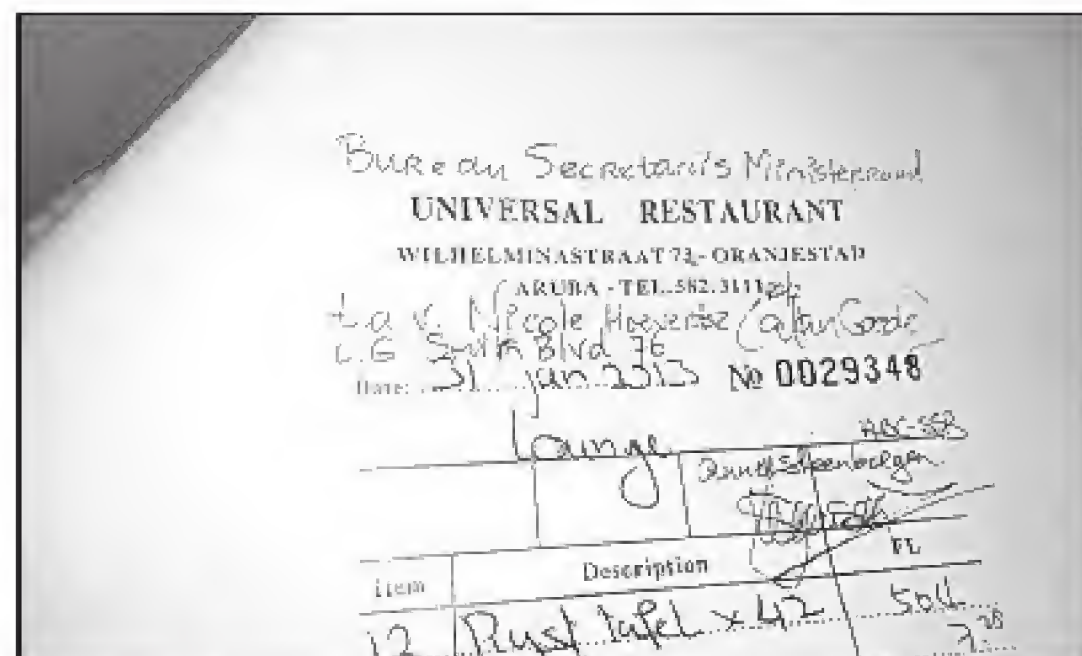 Bureau Secretaris Ministerraad
UNIVERSAL RESTAURANT
WILHELMINASTRAAT 73,- ORANJESTAD
ARUBA - TEL. 582.3111
t.a.v. Nicole Hoevertsz
L.G Smith Blvd 76
Date: 31 jan 2013 No 0029348
Lounge
Item Description FL
12 Rijst tafel x 42 504